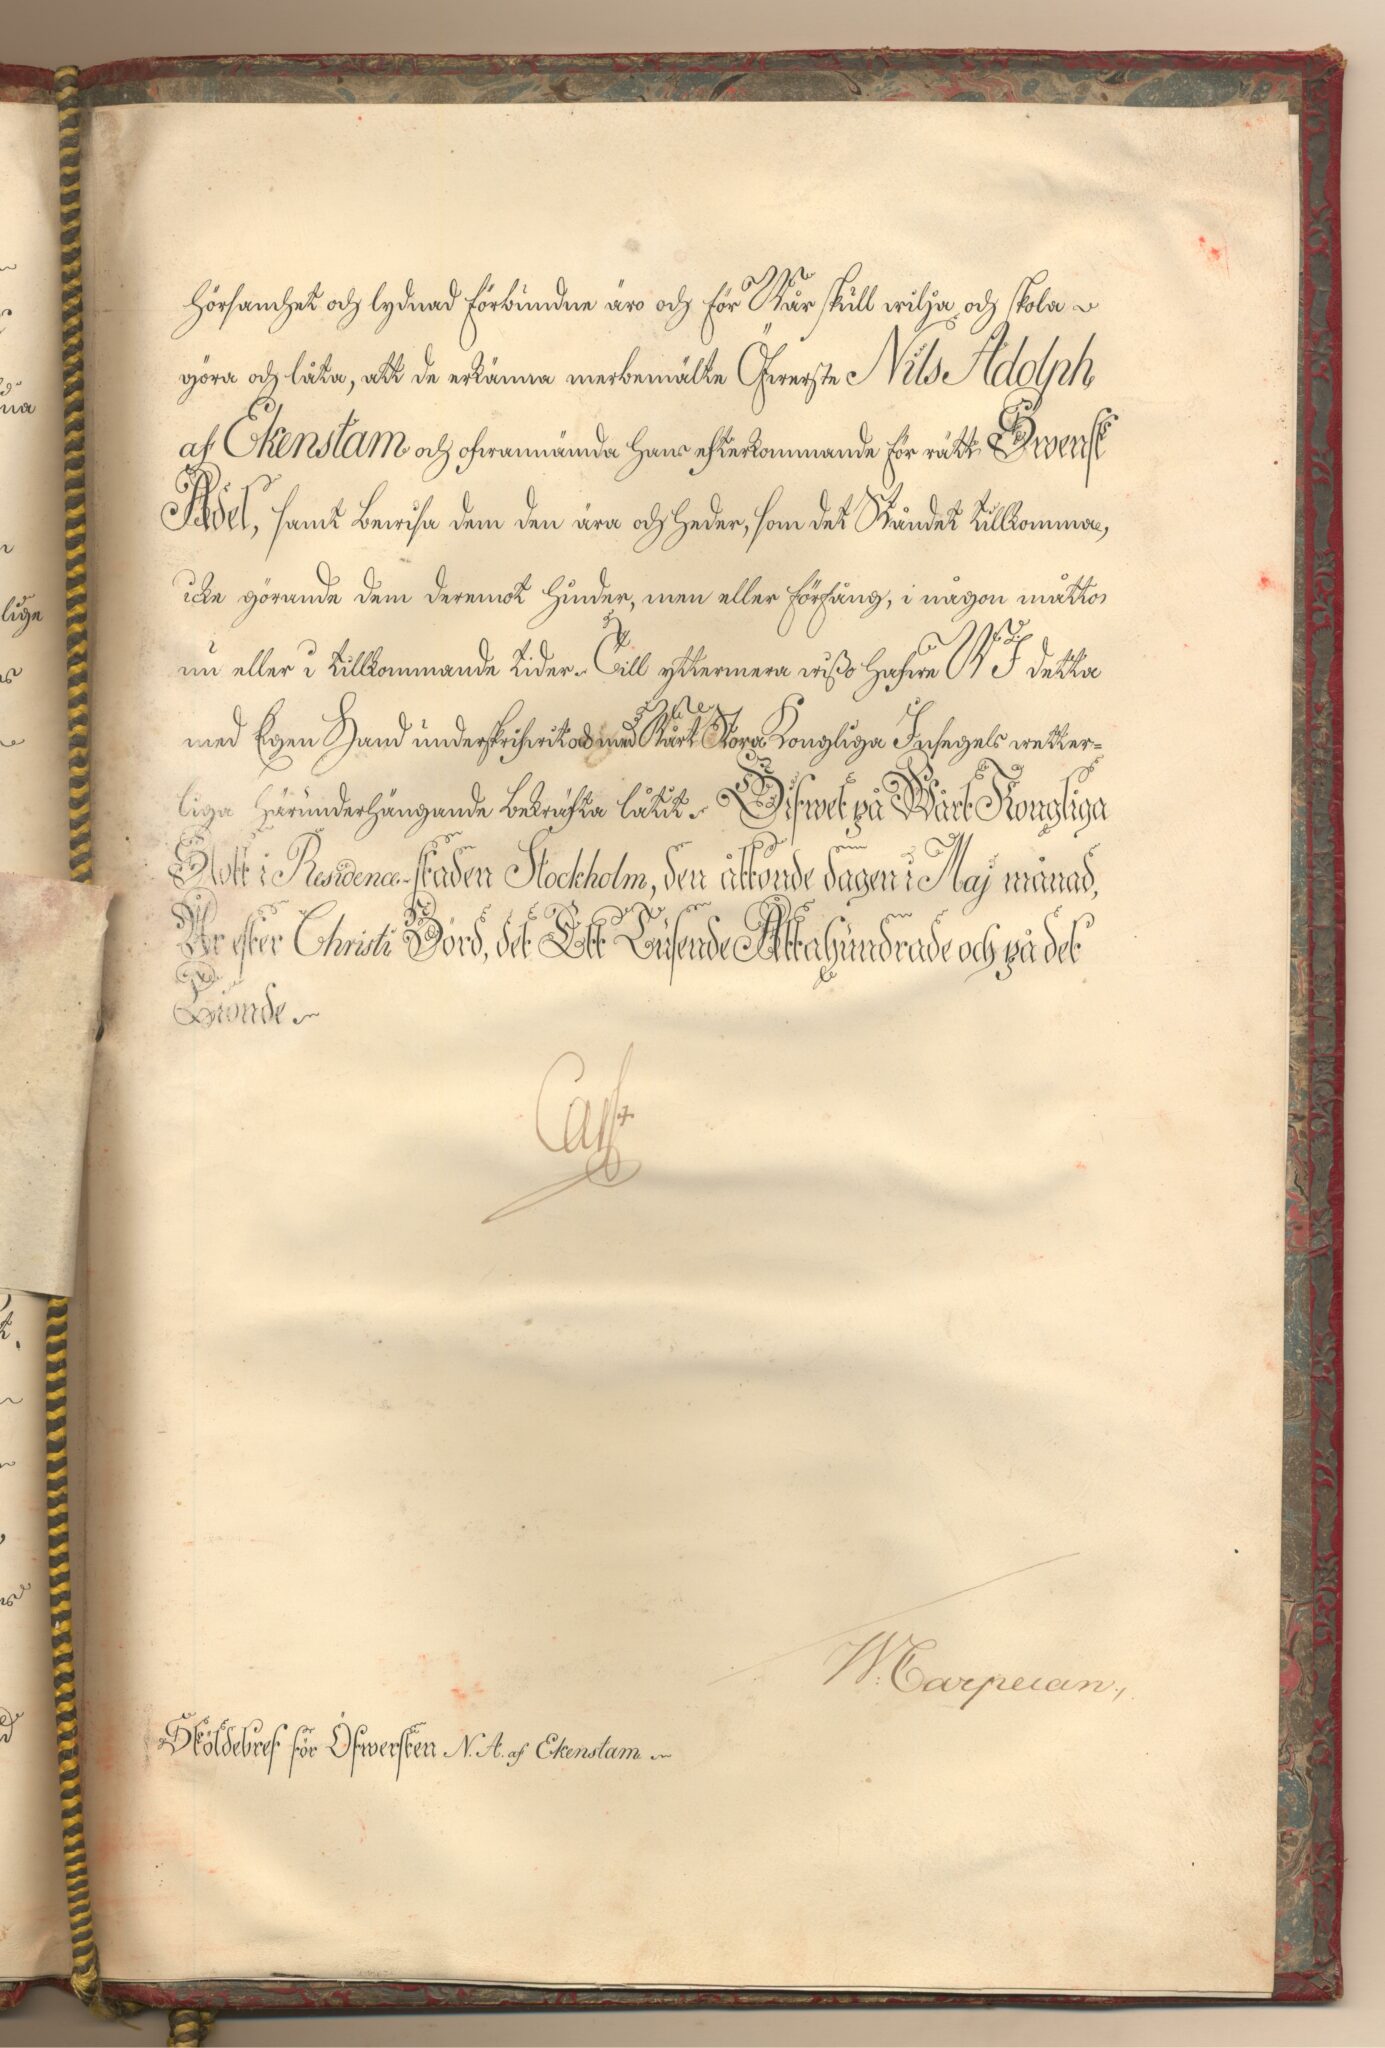 hörsamhet och lydnad förbundne äro och för Wår skull wilja och skola
göra och låta, att de erkänna merbemälte Öfwerste Nils Adolph
af Ekenstam och ofwannämnda hans efterkommande för rätt Swensk
Adel, samt bewisa dem den ära och heder, som det Ståndet tillkomma,
icke görande dem deremot hinder, men eller förfång, i någon måtto
nu eller i tillkommande tider. Till yttermera wißo hafwe WJ detta
med Egen Hand underskrifwit och med Wårt Stora Kongliga Insegels wetter-
liga härunderhängande bekräfta låtit. Gifwet på Wårt Kongliga
Slott i Residence-staden Stockholm, den åttonde dagen i Maj månad,
År efter Christi Börd, det Ett Tusende Attahundrade och på det
Tionde.
Carl
W: Carpelan.
Sköldebref för Öfwersten N. A. af Ekenstam
lige